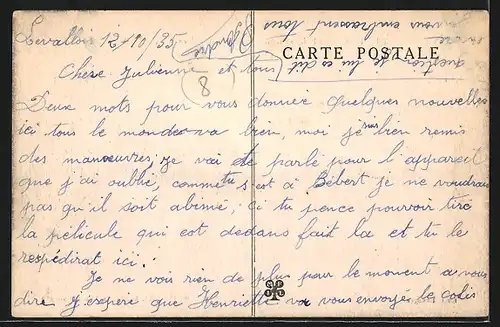 Levallois 12/10/35
CARTE POSTALE
Chère Julienne et tous
8
Deux mots pour vous donner quelques nouvelles
ici tous le monde va bien, moi je suis bien remis
des manœuvres, je vai de parlé pour l'appareil
que j'ai oublié, comme tu s'est à Bébert je ne voudrais
pas qu'il soit abimé, ci tu pence pouvoir tiré
la pélicule qui est dedans fait la et tu le
respédirat ici.
Je ne vois rien de plus pour le moment a vous
dire j'espère que Henriette va vous envoyé le colis
question je lui es dit
vous embrassent tous